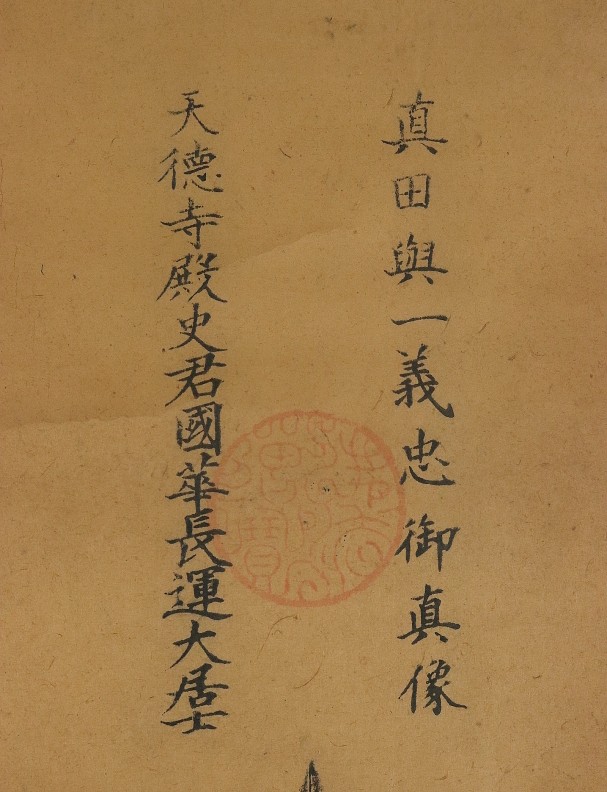 真田與一義忠御真像
天德寺殿史君國華長運大居士